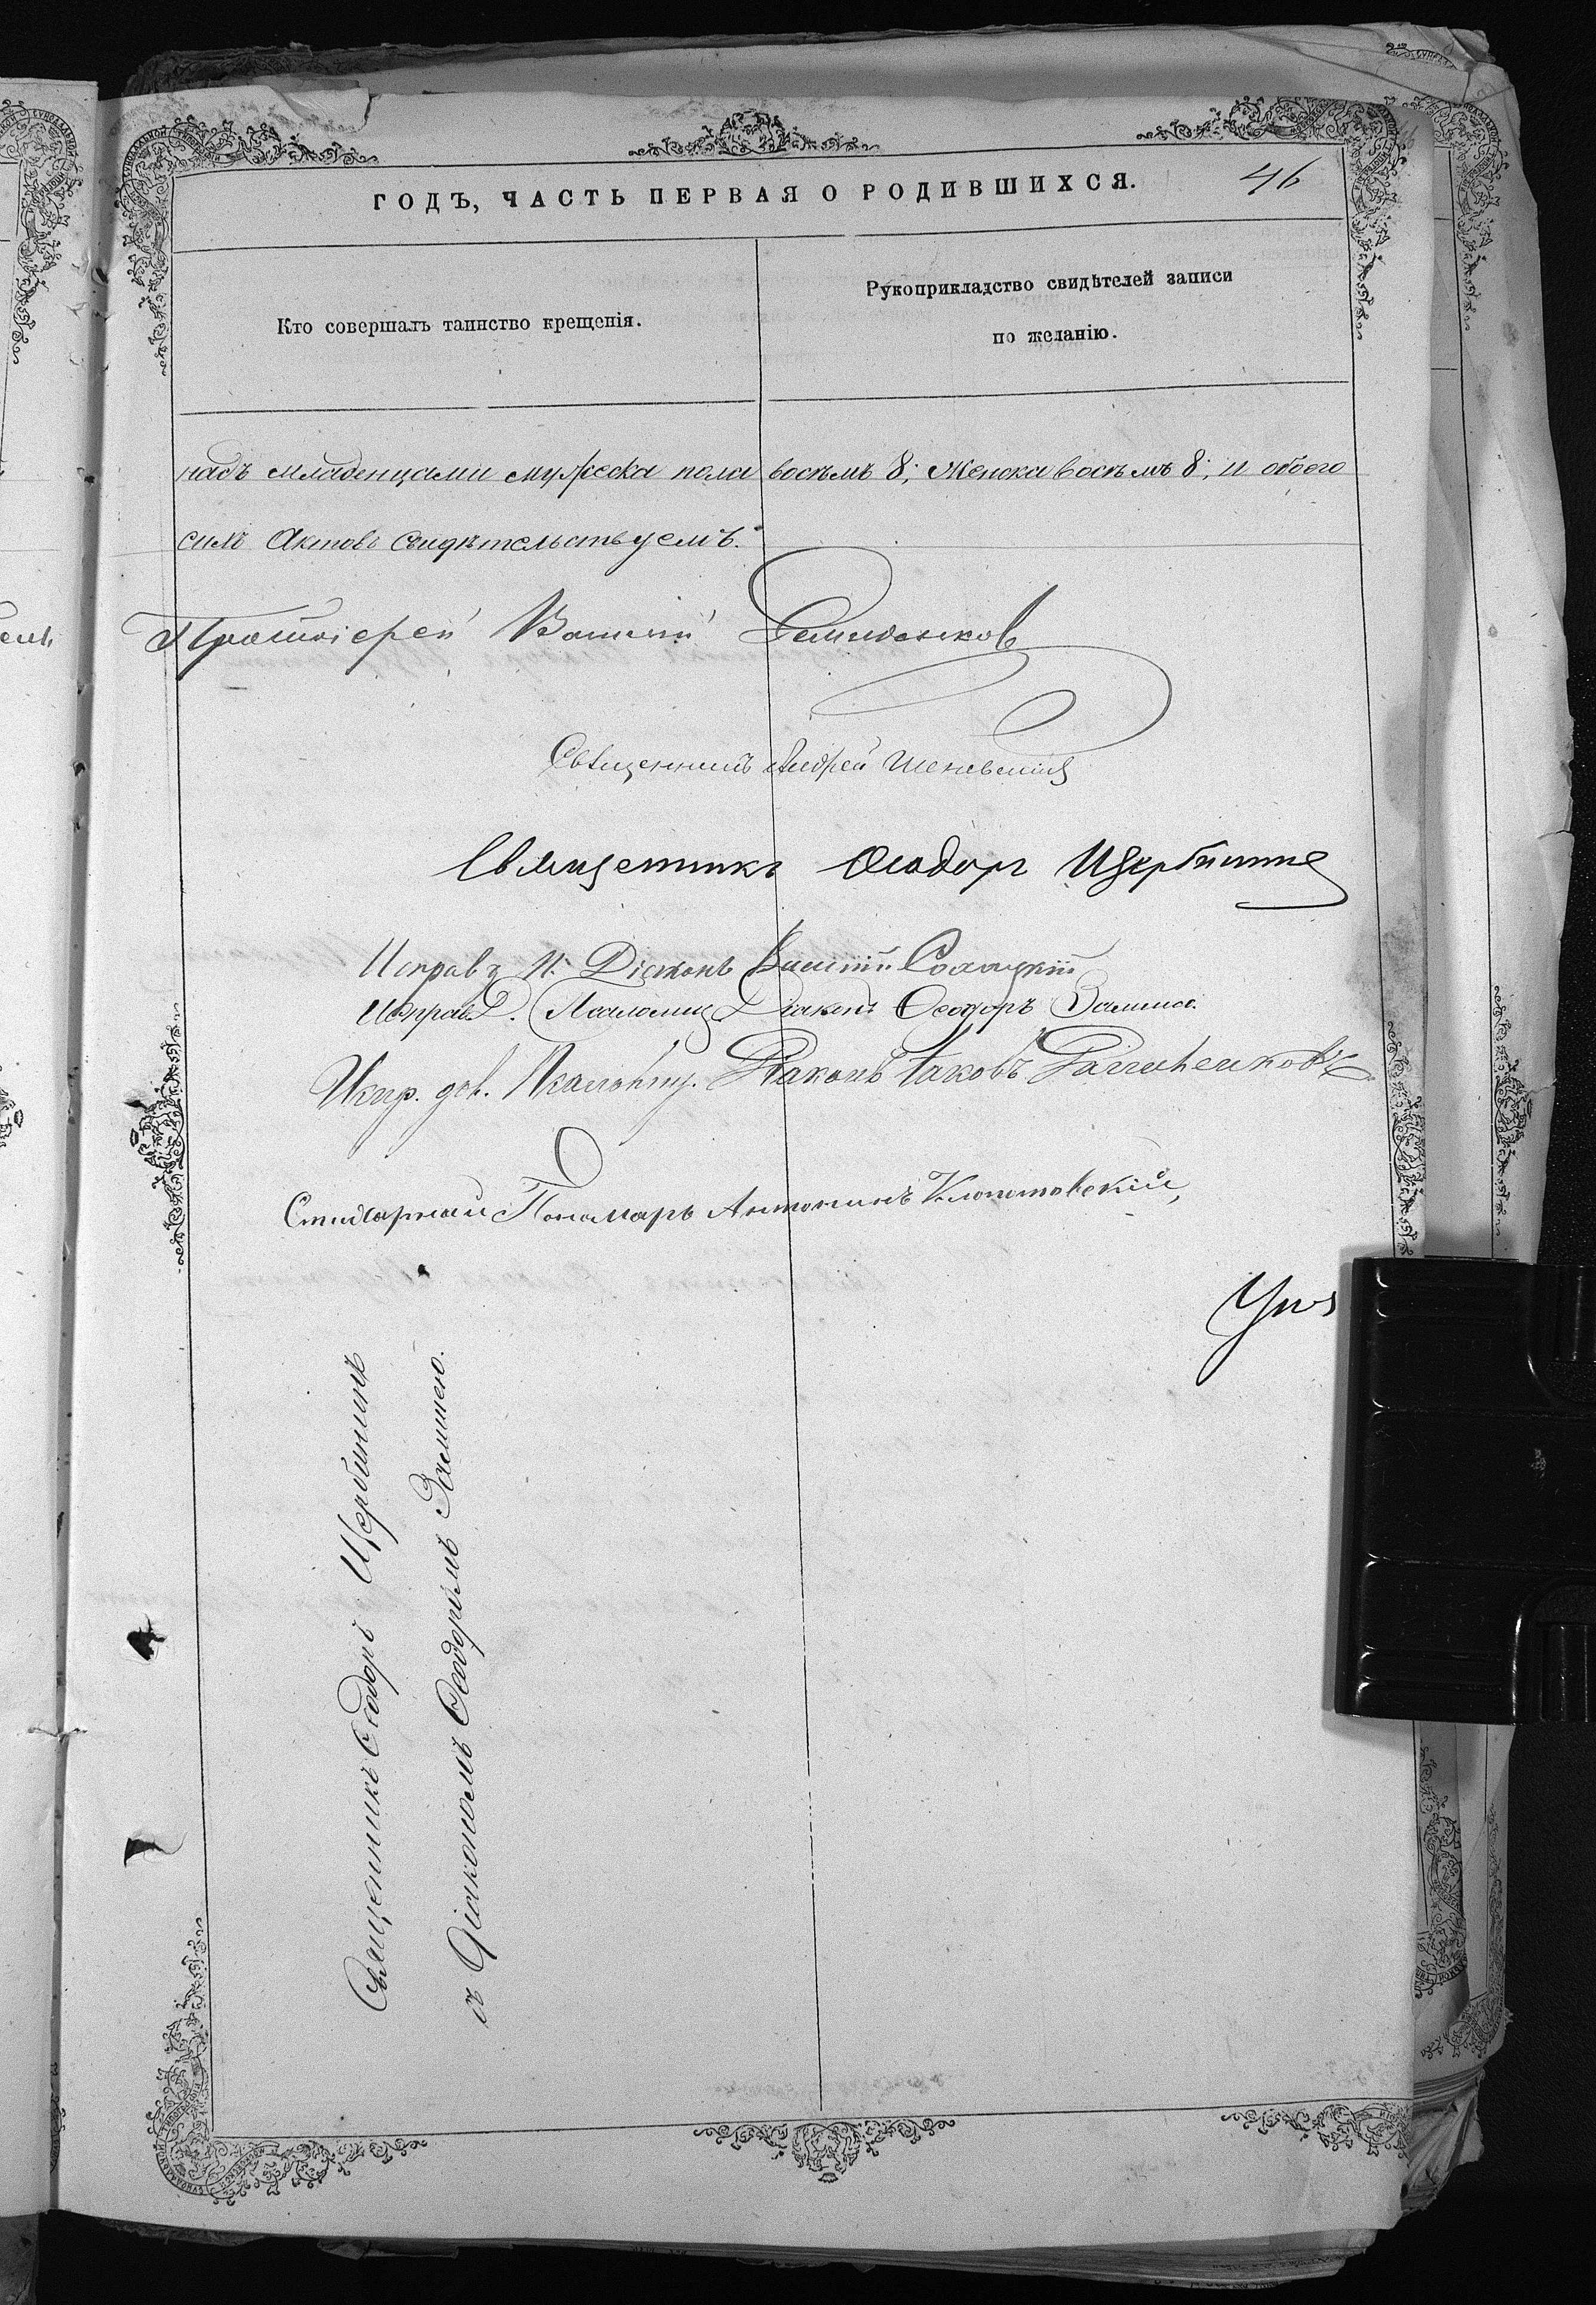 46
ГОДЪ, ЧАСТЬ ПЕРВАЯ О РОДИВШИХСЯ.
Кто совершалъ таинство крещенія.
Рукоприкладство свидѣтелей записи
по желанію.
надъ младенцами мужеска пола восемь 8; женска восемь 8; и обоего
сихъ актовъ свидѣтельствуемъ.
Протоіерей Василій
Священникъ Андрей
Священникъ Ѳеодоръ Щербининъ
Исправ. Діаконъ Василій
Исправ. Д. Псаломщ. Діаконъ Ѳеодоръ
Испр. дол. Псаломщ. Діаконъ Іаковъ
Стихарный Пономарь Антонинъ Клопотовскій,
Священникъ Ѳеодоръ Щербининъ
съ Діакономъ Ѳеодоромъ